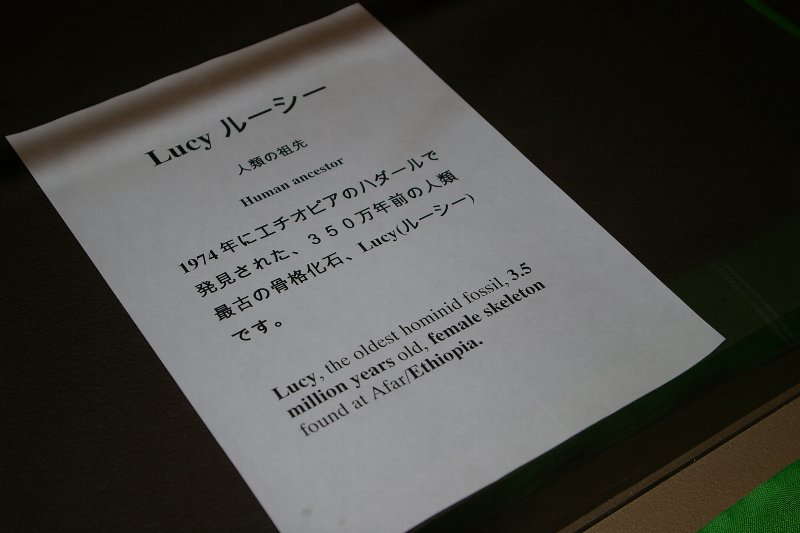 Lucy ルーシー
人類の祖先
Human ancestor
1974 年にエチオピアのハダールで
発見された、３５０万年前の人類
最古の骨格化石、Lucy(ルーシー)
です。
Lucy, the oldest hominid fossil, 3.5
million years old, female skeleton
found at Afar/Ethiopia.